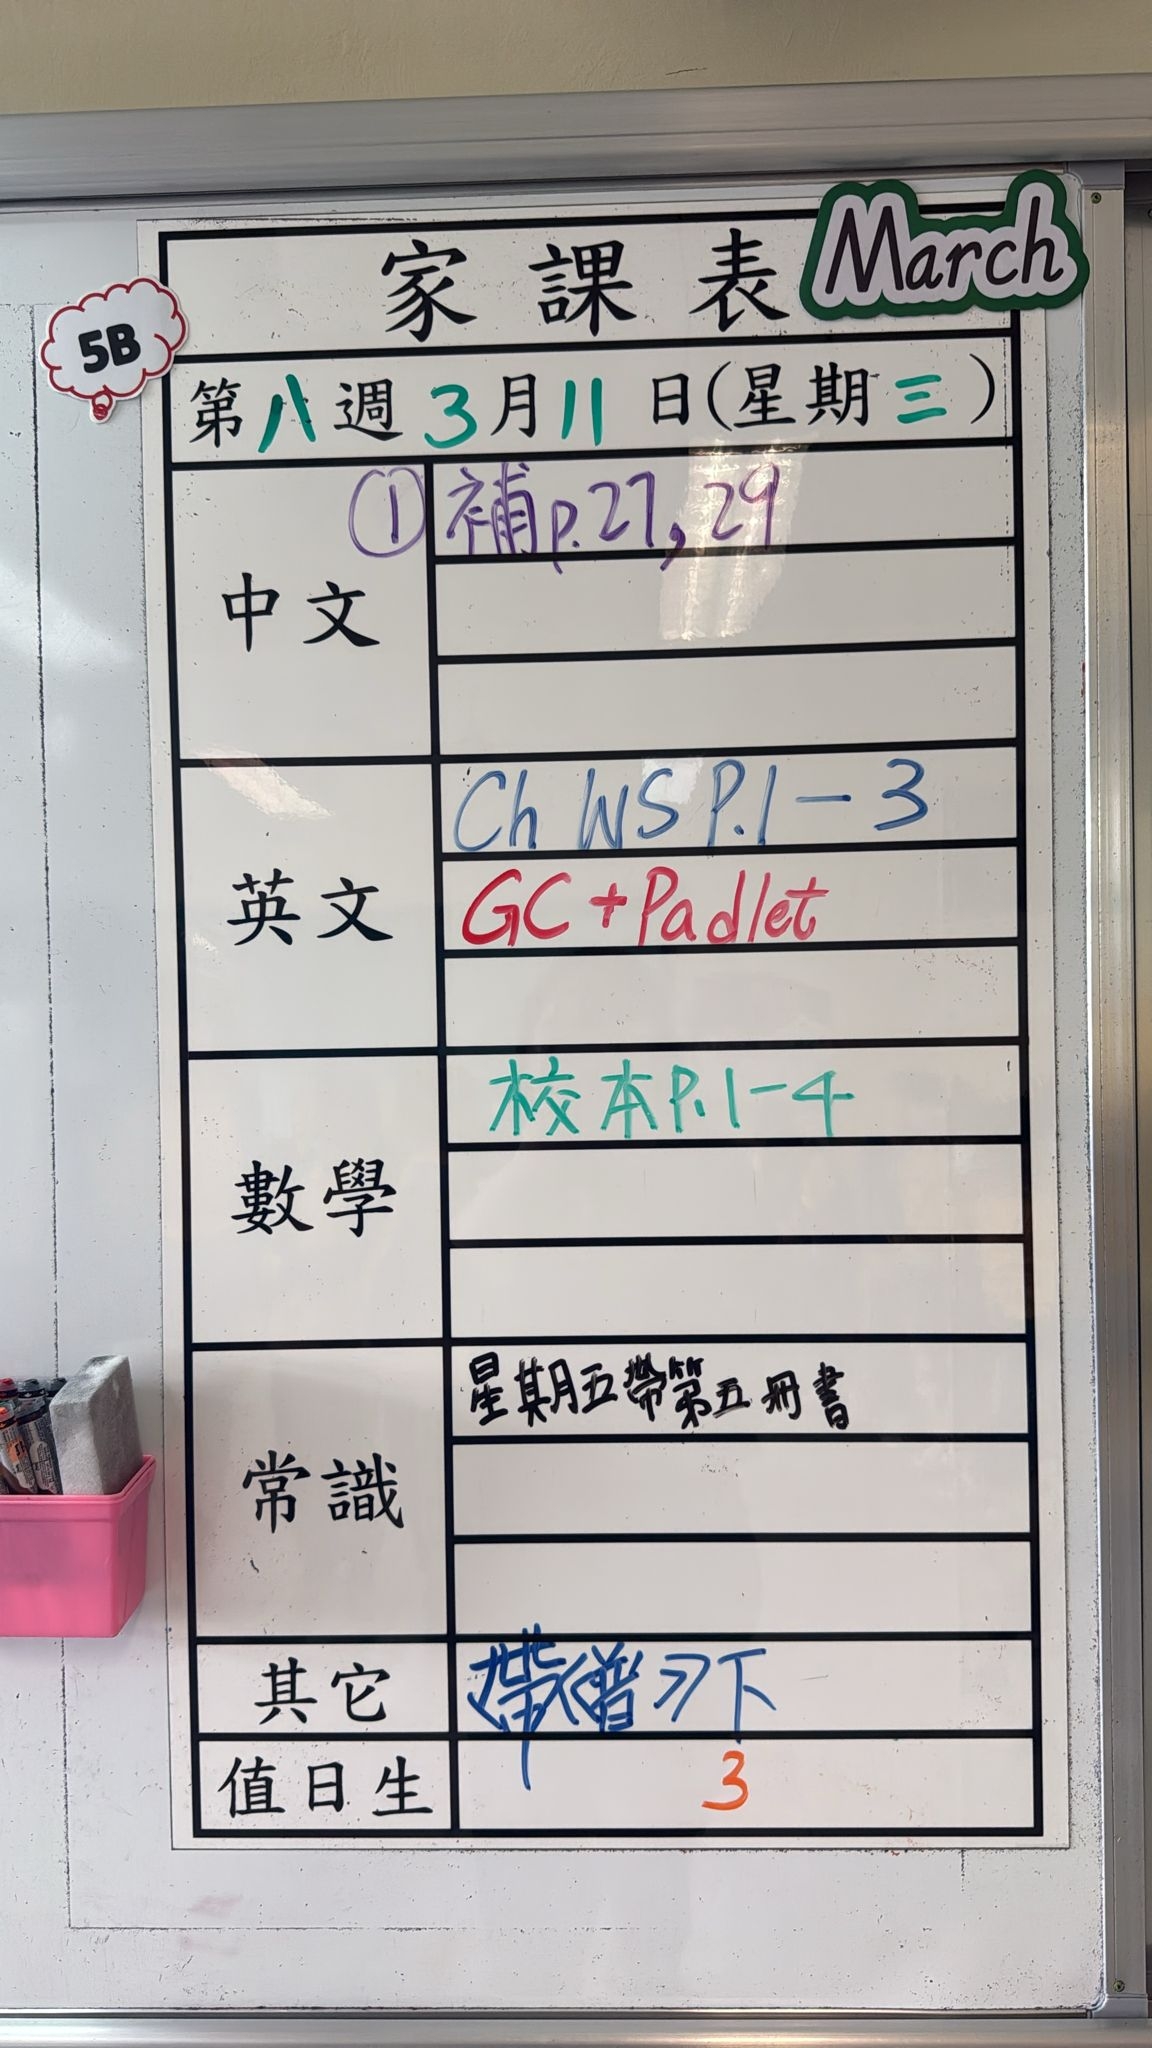 家課表
March
5B
第八週3月11日(星期三)
中文
①補p.27,29
英文
Ch WS P.1-3
GC+Padlet
數學
校本P.1-4
常識
星期五帶第五冊書
其它
帶 習下
值日生
3